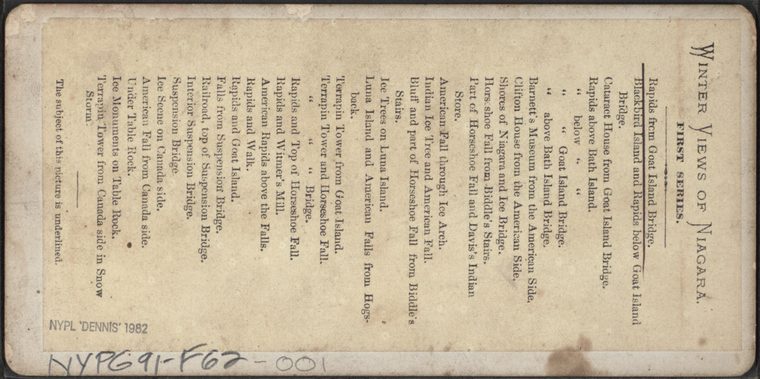 WINTER VIEWS OF NIAGARA.
FIRST SERIES.
Rapids from Goat Island Bridge.
Blackbird Island and Rapids below Goat Island
Bridge.
Cataract House from Goat Island Bridge.
Rapids above Bath Island.
" below " "
" " Goat Island Bridge.
" above Bath Island Bridge.
Barnett's Museum from the American Side.
Clifton House from the American Side.
Shores of Niagara and Ice Bridge.
Horseshoe Fall from Biddle's Stairs.
Part of Horseshoe Fall and Davis's Indian
Store.
American Fall through Ice Arch.
Indian Ice Tree and American Fall.
Bluff and part of Horseshoe Fall from Biddle's
Stairs.
Ice Trees on Luna Island.
Luna Island and American Falls from Hogs-
back.
Terrapin Tower from Goat Island.
" " " Bridge.
Terrapin Tower and Horseshoe Fall.
Rapids and Top of Horseshoe Fall.
Rapids and Witmer's Mill.
American Rapids above the Falls.
Rapids and Walk.
Rapids and Goat Island.
Falls from Suspension Bridge.
Railroad, top of Suspension Bridge.
Interior Suspension Bridge.
Suspension Bridge.
Ice Scene on Canada side.
American Fall from Canada side.
Under Table Rock.
Ice Monuments on Table Rock.
Terrapin Tower from Canada side in Snow
Storm.
The subject of this picture is underlined.
NYPL 'DENNIS' 1982
NYPG91-F62-001